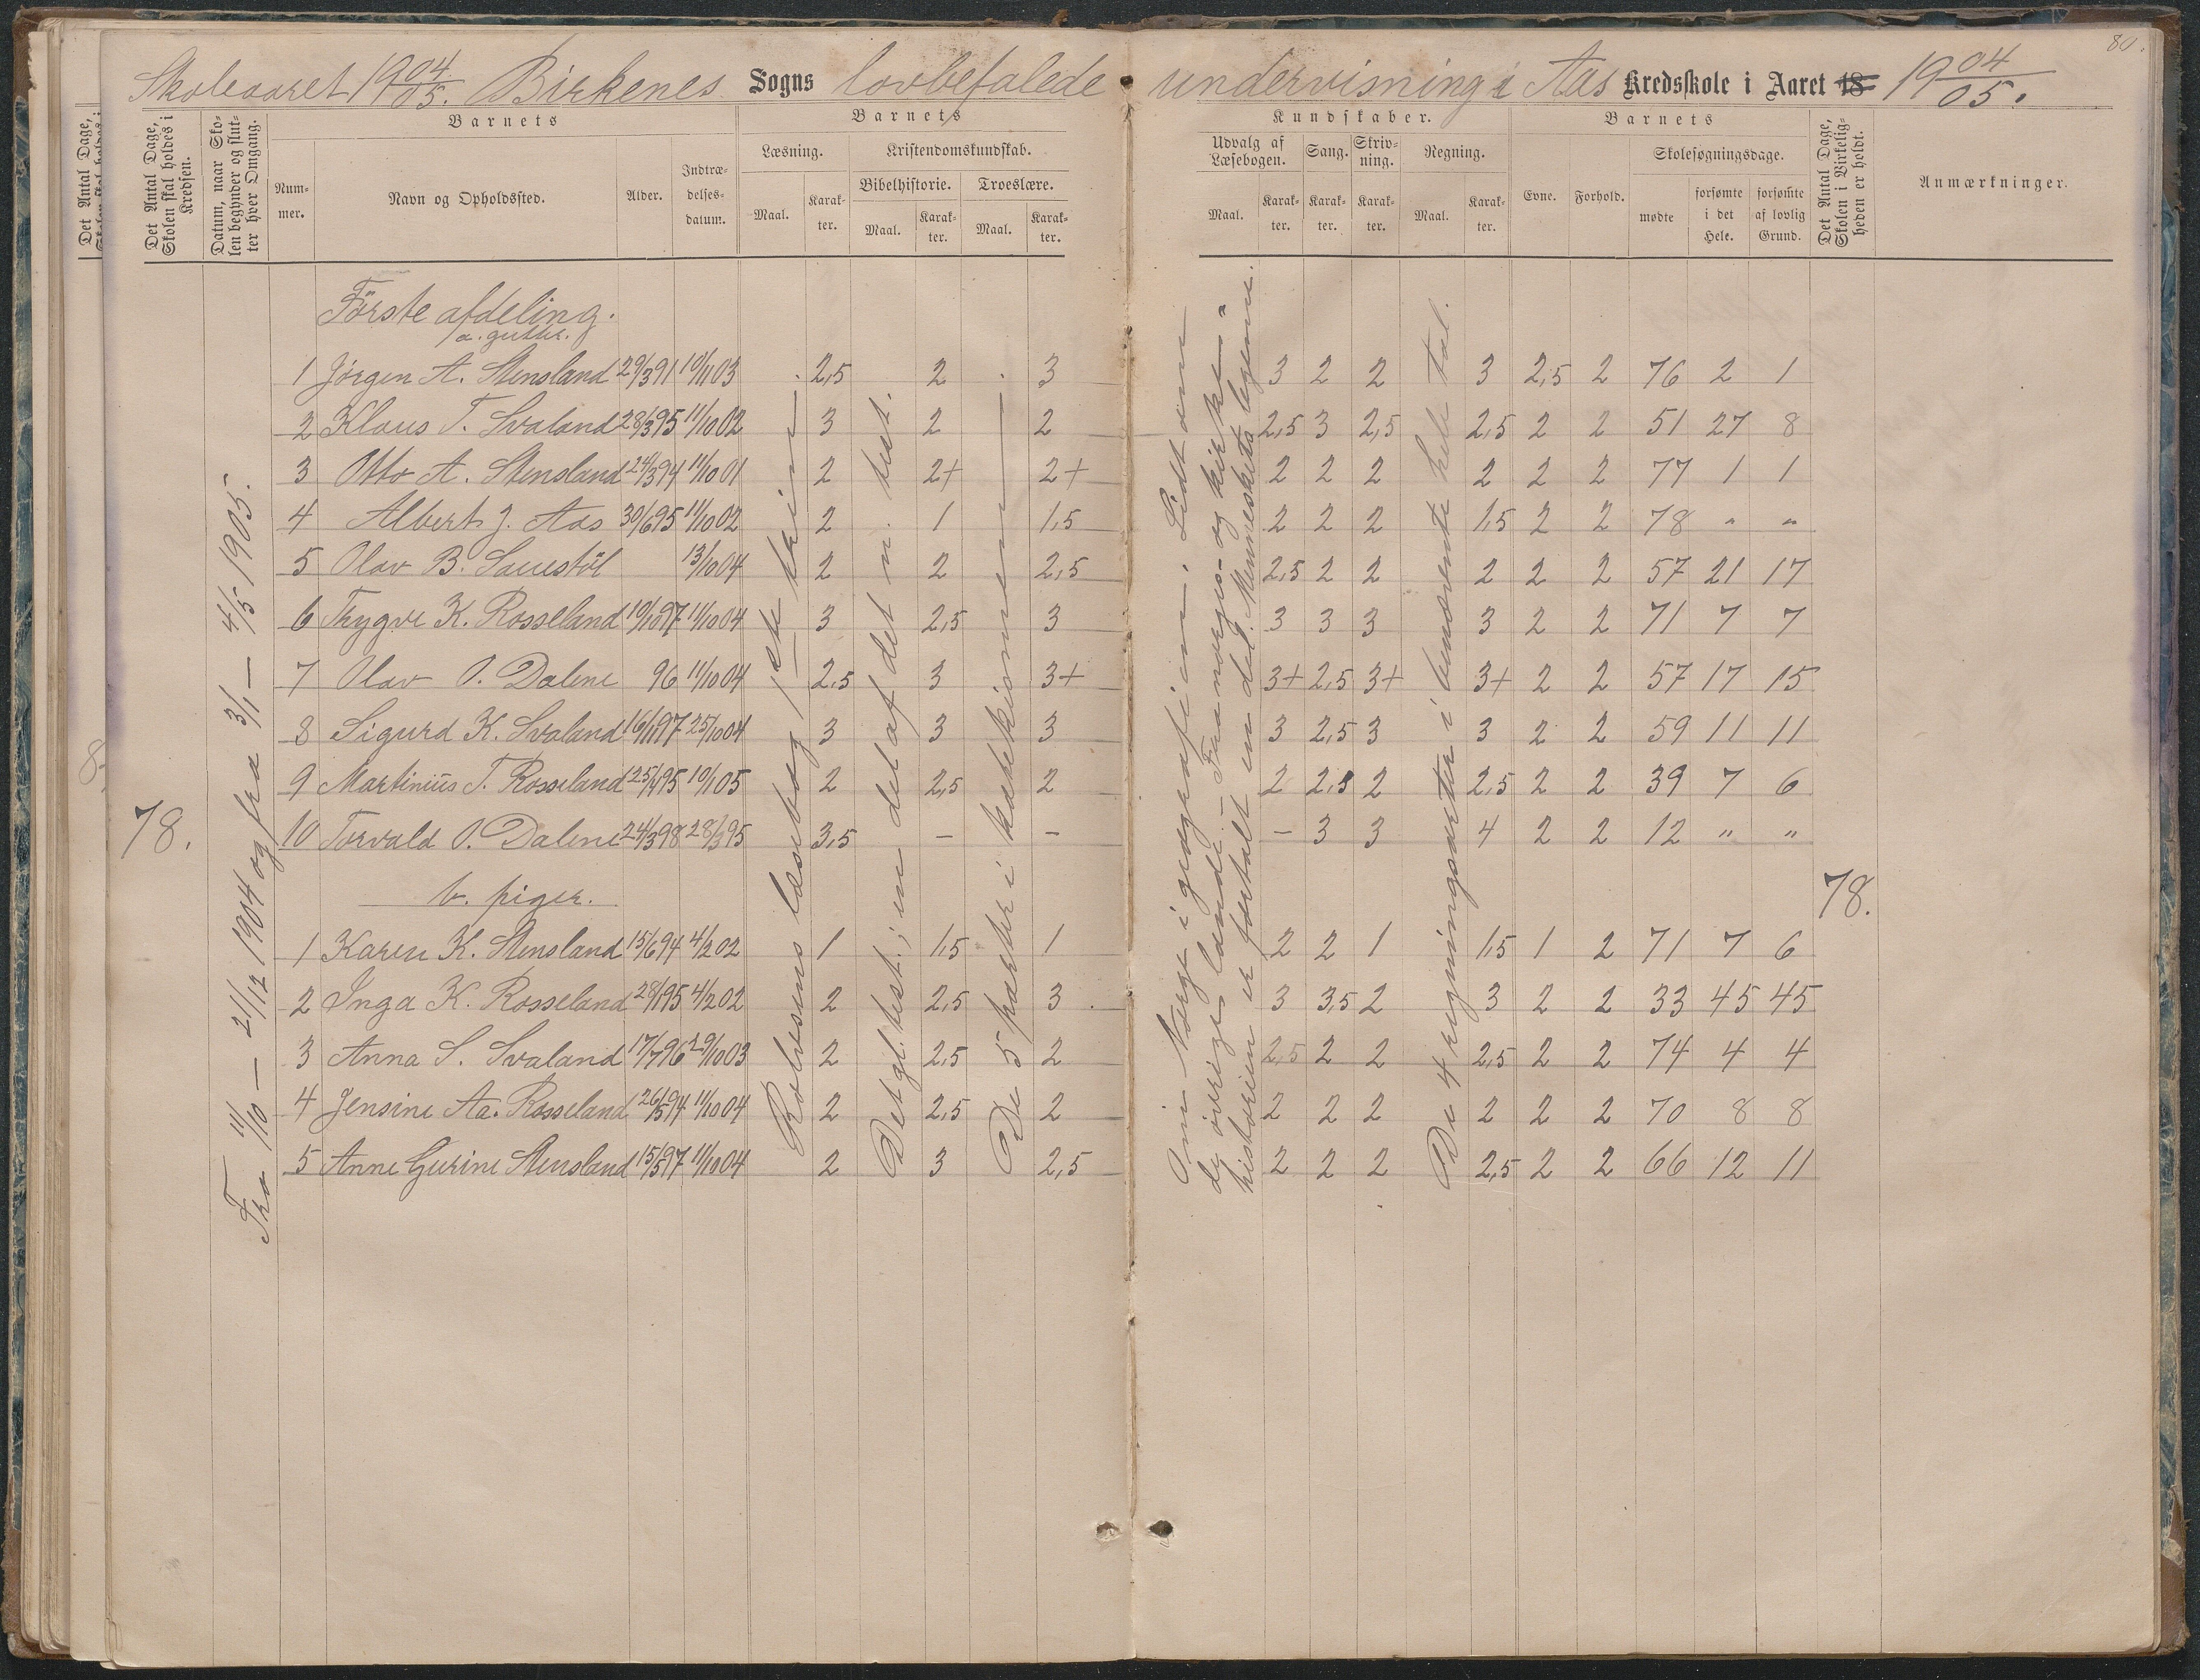 80.
Skoleaaret 1904/05. Birkenes Sogns lovbefalede undervisning i Aas Kredsskole i Aaret 18 1904/05.
Det Antal Dage,
Det Antal Dage, Skolen skal holdes i Kredsen.
Datum, naar Skolen begynder og slutter hver Omgang.
Barnets
Nummer.
Navn og Opholdssted.
Alder.
Indtrædelsesdatum.
Barnets
Læsning.
Maal.
Karakter.
Kristendomskundskab.
Bibelhistorie.
Maal.
Karakter.
Troeslære.
Maal.
Karakter.
Kundskaber.
Udvalg af Læsebogen.
Maal.
Karakter.
Sang.
Karakter.
Skrivning.
Karakter.
Regning.
Maal.
Karakter.
Barnets
Evne.
Forhold.
Skolesøgningsdage.
mødte
forsømte i det Hele.
forsømte af lovlig Grund.
Det Antal Dage, Skolen i Virkeligheden er holdt.
Anmærkninger.
78.
Fra 11/10 — 21/12 1904 og fra 3/1 — 4/5 1905.
Første afdeling.
a. gutter.
1 Jørgen A. Stensland 29/3 91 10/11 03 2,5 2 3 3 2 2 3 2,5 2 76 2 1
2 Klaus T. Svaland 28/3 95 11/10 02 3 2 2 2,5 3 2,5 2,5 2 2 51 27 8
3 Otto A. Stensland 24/3 94 11/10 01 2 2+ 2+ 2 2 2 2 2 2 77 1 1
4 Albert J. Aas 30/6 95 11/10 02 2 1 1,5 2 2 2 1,5 2 2 78 " "
5 Olav B. Sauestøl 13/10 04 2 2 2,5 2,5 2 2 2 2 2 57 21 17
6 Trygve K. Rosseland 10/10 97 11/10 04 3 2,5 3 3 3 3 3 2 2 71 7 7
7 Olav O. Dalene 96 11/10 04 2,5 3 3+ 3+ 2,5 3+ 3+ 2 2 57 17 15
8 Sigurd K. Svaland 16/1 97 25/10 04 3 3 3 3 2,5 3 3 2 2 59 11 11
9 Martinius T. Rosseland 25/1 95 10/1 05 2 2,5 2 2 2,5 2 2,5 2 2 39 7 6
10 Torvald O. Dalene 24/3 98 28/3 95 3,5 — — — 3 3 4 2 2 12 " "
b. piger.
1 Karen K. Stensland 15/6 94 4/2 02 1 1,5 1 2 2 1 1,5 1 2 71 7 6
2 Inga K. Rosseland 28/1 95 4/2 02 2 2,5 3 3 3,5 2 3 2 2 33 45 45
3 Anna S. Svaland 17/7 96 29/10 03 2 2,5 2 2,5 2 2 2,5 2 2 74 4 4
4 Jensine Aa. Rosseland 26/5 94 11/10 04 2 2,5 2 2 2 2 2 2 2 70 8 8
5 Anne Gurine Stensland 15/5 97 11/10 04 2 3 2,5 2 2 2 2,5 2 2 66 12 11
Rolvsens læsebog 1ste trin
Det gl. test.; en del af det n. test.
De 5 parter i katekismen
Om Norge i geografien. Lidt om
de øvrige lande. — Fra norges- og kirke-
historien er fortalt en del. Menneskets legeme.
De 4 regningsarter i benævnte hele tal.
78.